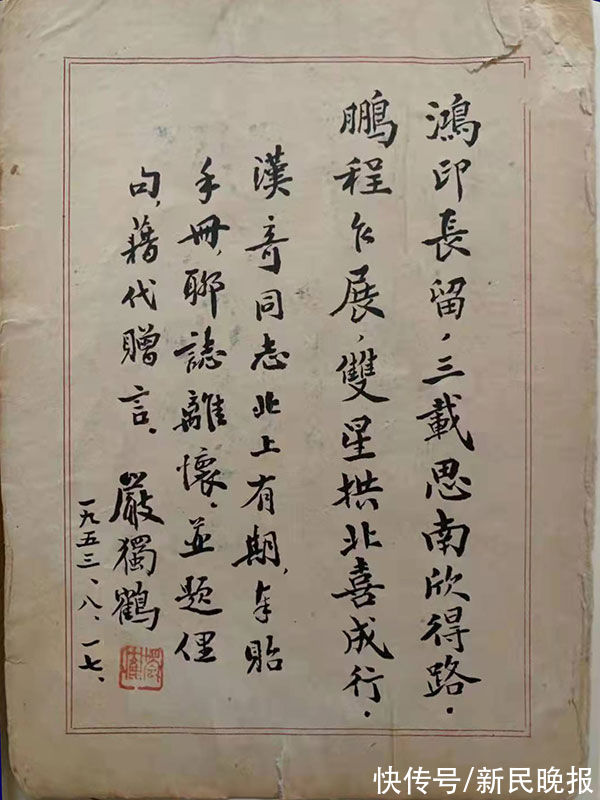 鴻印長留，三載思南欣得路．
鵬程乍展，雙星拱北喜成行．
漢奇同志北上有期，奉貽
手冊，聊誌離懷．並題俚
句，藉代贈言．
嚴獨鶴
一九五三、八、一七、
快传号/新民晚报